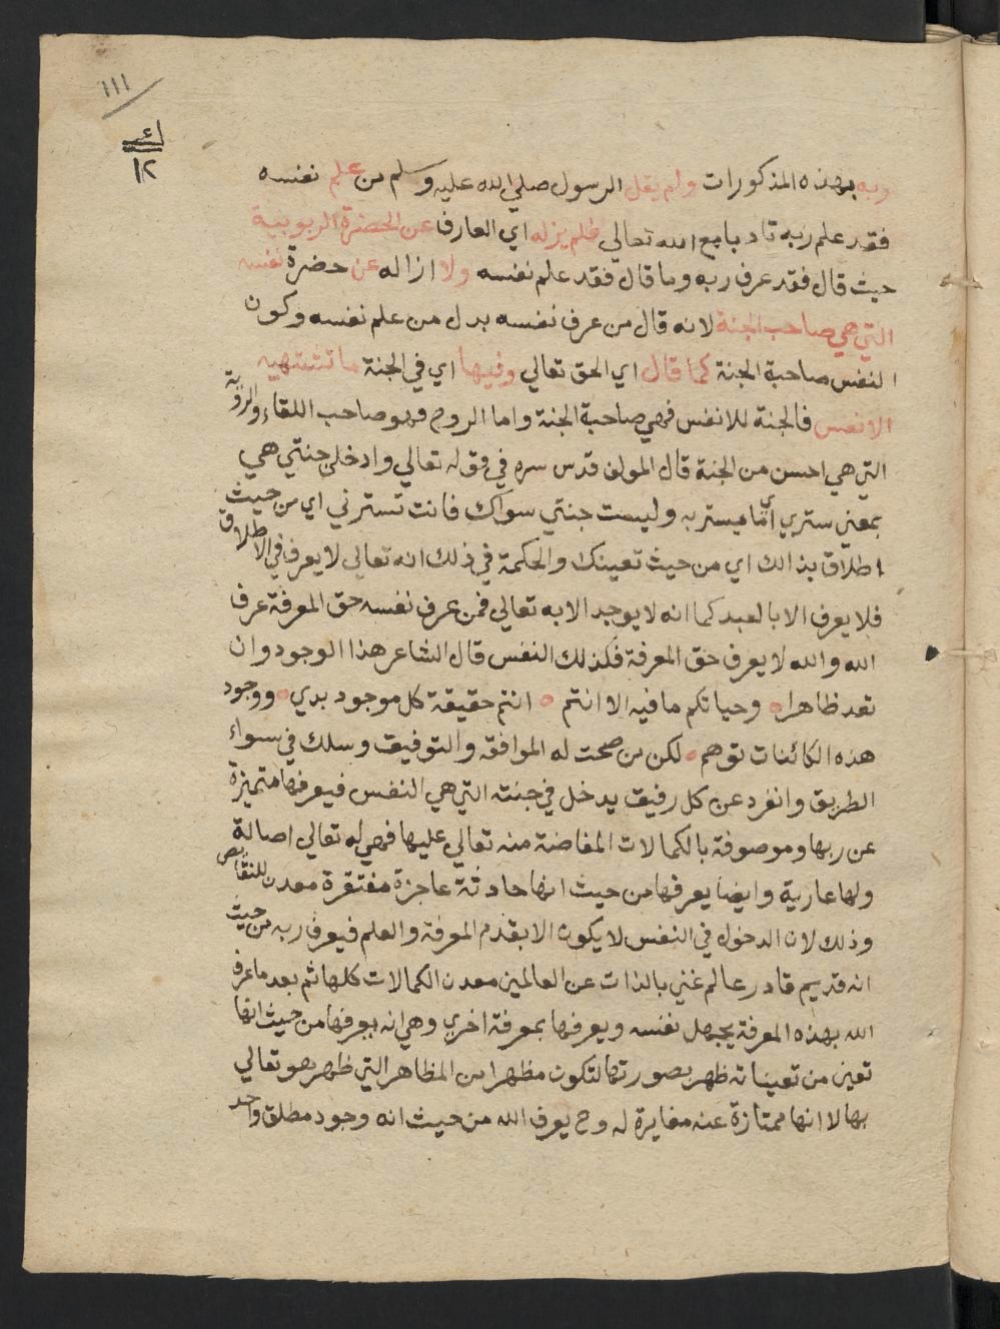 ١١١
١٢
ربه بهذه المذكورات ولم يقل الرسول صلي الله عليه وسلم من علم نفسه
فقد علم ربه تادبا مع الله تعالي فلم يزله اي العارف عن الحضرة الربوبية
حيث قال فقد عرف ربه وما قال فقد علم نفسه ولا ازاله عن حضرة نفسه
التي هي صاحب الجنة لانه قال من عرف نفسه بدل من علم نفسه وكون
النفس صاحبة الجنة كما قال اي الحق تعالي وفيها اي في الجنة ما تشتهيه
الانفس فالجنة للانفس فهي صاحبة الجنة واما الروح فهو صاحب اللقاء والرؤية
التي هي احسن من الجنة قال المولف قدس سره في قوله تعالي وادخلي جنتي هي
بمعني ستري اي ما يستر به وليست جنتي سواك فانت تسترني اي من حيث
اطلاق بذاتك اي من حيث تعينك والحكمة في ذلك انه تعالي لا يعرف في الاطلاق
فلا يعرف الا بالعبد كما انه لا يوجد الا به تعالي فمن عرف نفسه حق المعرفة عرف
الله والله لا يعرف حق المعرفة فكذلك النفس قال الشاعر هذا الوجود وان
تعد ظاهرا ه وحياتكم ما فيه الا انتم ه انتم حقيقة كل موجود بدي ه ووجود
هذه الكائنات توهم ه لكن من صحت له الموافقة والتوفيق وسلك في سواء
الطريق وانفرد عن كل رفيق يدخل في جنته التي هي النفس فيعرفها متميزة
عن ربها وموصوفة بالكمالات المفاضة منه تعالي عليها فهي له تعالي اصالة
ولها عارية وايضا يعرفها من حيث انها حادثة عاجزة مفتقرة معدن للنقايص
وذلك لان الدخول في النفس لا يكون الا بقدم المعرفة والعلم فيعرف ربه من حيث
انه قديم قادر عالم غني بالذات عن العالمين معدن الكمالات كلها ثم بعد ما عرف
الله بهذه المعرفة يجهل نفسه ويعرفها بمعرفة اخري وهي انه يعرفها من حيث انها
تعين من تعيناته ظهر بصورتها لتكون مظهرا من المظاهر التي ظهر هو تعالي
بها لا انها ممتازة عنه مغايرة له وح يعرف الله من حيث انه وجود مطلق واحد